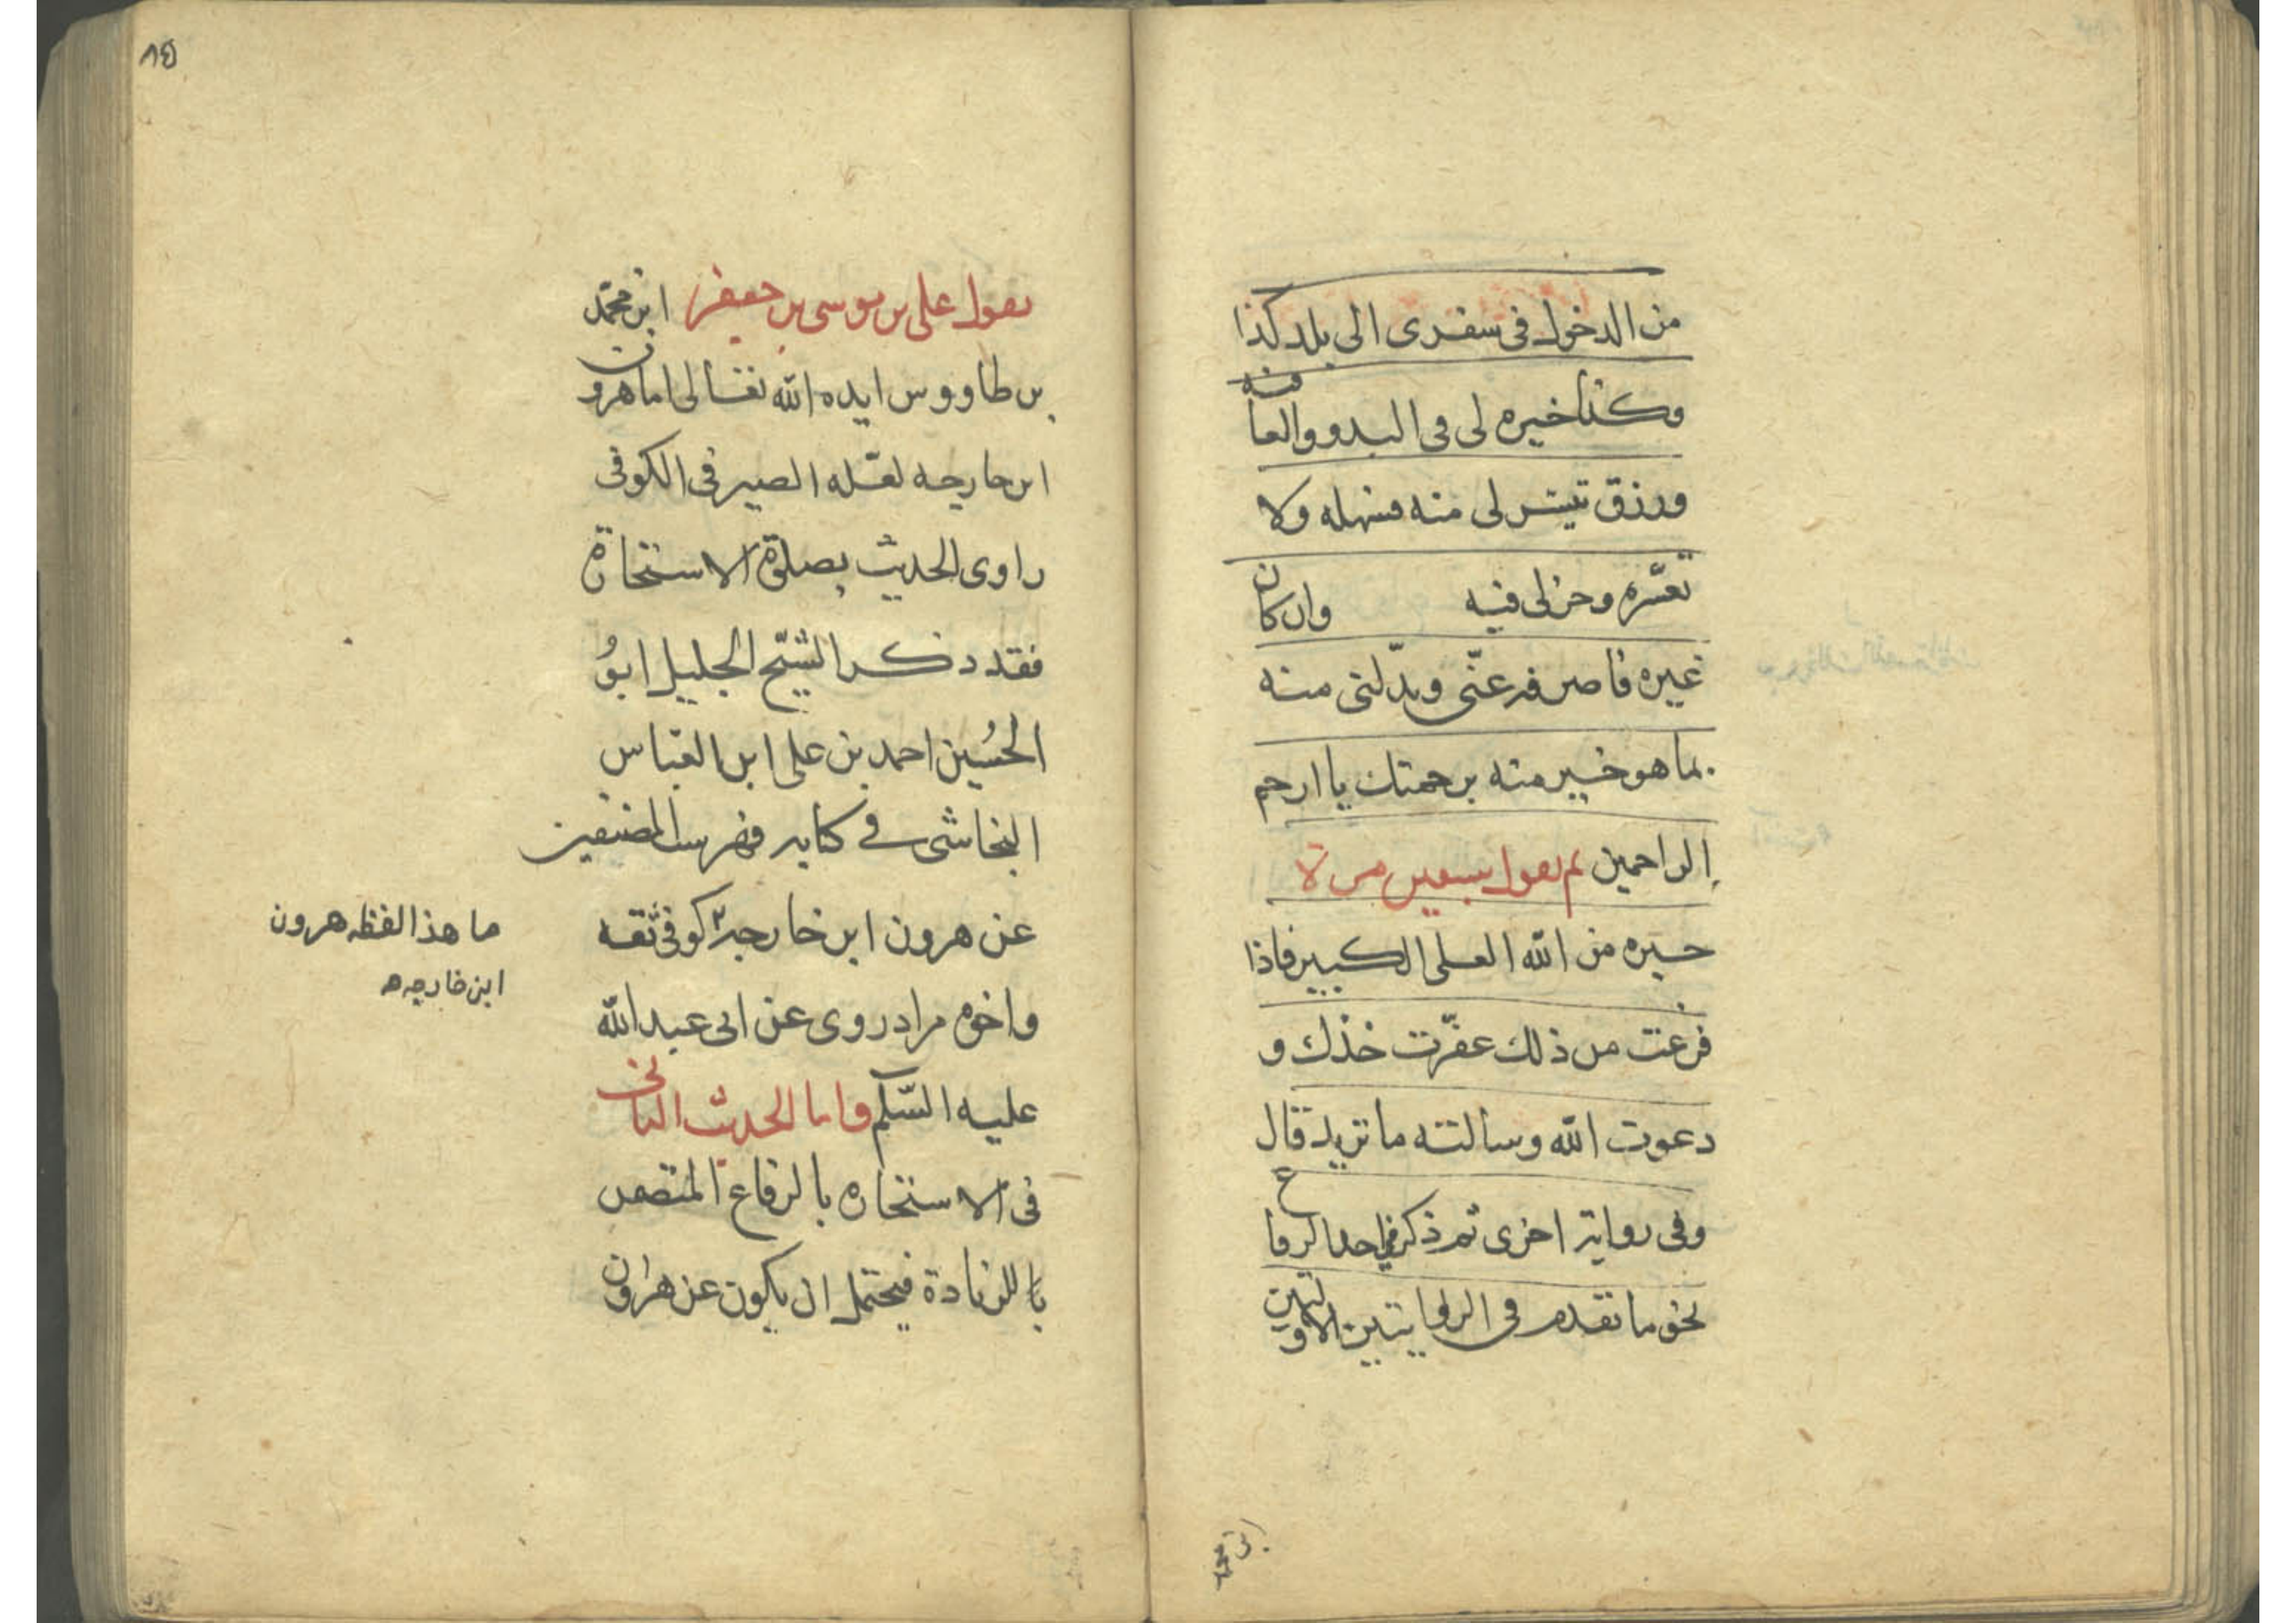 من الدخول فى سفرى الى بلد كذا
وكذا خيره لى فى البدو والعاقبه
ورزق تيسر لى منه فسهله ولا
تعسره وخر لى فيه وان كان
غيره فاصرفه عنّى وبدّلنى منه
بما هو خير منه برحمتك يا ارحم
الراحمين ثم تقول سبعين مرة
خيره من الله العلى الكبير فاذا
فرغت من ذلك عفّرت خدّك و
دعوت الله وسالته ما تريد قال
وفى رواية اخرى ثم ذكر فى احد الرقاع
نحو ما تقدم فى الروايتين الاولتين
ابن محمد
١٥
يقول على بن موسى بن جعفر ابن محمّد
بن طاووس ايده الله تعالى اما هرون
ابن خارجه لعله الصيرفى الكوفى
راوى الحديث بصلوة الاستخارة
فقد ذكر الشيخ الجليل ابوُ
الحُسين احمد بن على ابن العباس
النجاشى فى كتابه فهرست المصنفين
عن هرون ابن خارجة كوفى ثقه
واخوه مراد روى عن ابى عبد الله
عليه السّلم واما الحديث الثانى
فى الاستخاره بالرقاع المتضمن
بالزيادة فيحتمل ان يكون عن هرون
ما هذا لفظه هرون
ابن خارجه